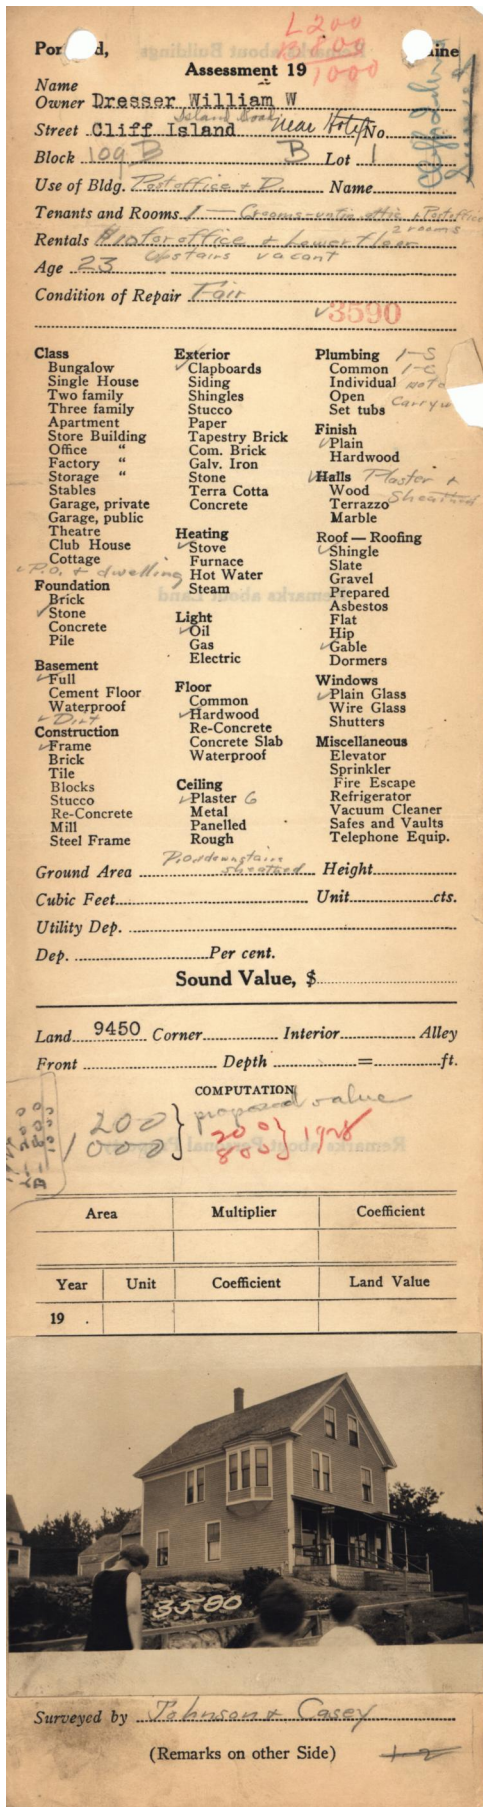 L 200
B 800
1000
Portland, Maine
Assessment 19
Name
Owner Dresser William W
Island Road
Street Cliff Island near Hotel No.
Block 109 B B Lot 1
Use of Bldg. Postoffice + D. Name
Tenants and Rooms 1 - 6 rooms - untin attic + Postoffice
2 rooms
Rentals $10 for office + Lower floor
Upstairs vacant
Age 23
Condition of Repair Fair
3590
Class
Bungalow
Single House
Two family
Three family
Apartment
Store Building
Office "
Factory "
Storage "
Stables
Garage, private
Garage, public
Theatre
Club House
Cottage
P.O. + dwelling
Foundation
Brick
Stone
Concrete
Pile
Basement
Full
Cement Floor
Waterproof
Dirt
Construction
Frame
Brick
Tile
Blocks
Stucco
Re-Concrete
Mill
Steel Frame
Exterior
Clapboards
Siding
Shingles
Stucco
Paper
Tapestry Brick
Com. Brick
Galv. Iron
Stone
Terra Cotta
Concrete
Heating
Stove
Furnace
Hot Water
Steam
Light
Oil
Gas
Electric
Floor
Common
Hardwood
Re-Concrete
Concrete Slab
Waterproof
Ceiling
Plaster 6
Metal
Panelled
Rough
Plumbing 1-S
Common 1-C
Individual
Open
Set tubs Carry
Finish
Plain
Hardwood
Halls Plaster +
Wood Sheathed
Terrazzo
Marble
Roof — Roofing
Shingle
Slate
Gravel
Prepared
Asbestos
Flat
Hip
Gable
Dormers
Windows
Plain Glass
Wire Glass
Shutters
Miscellaneous
Elevator
Sprinkler
Fire Escape
Refrigerator
Vacuum Cleaner
Safes and Vaults
Telephone Equip.
P.O. downstairs
sheathed
Ground Area Height
Cubic Feet Unit cts.
Utility Dep.
Dep. Per cent.
Sound Value, $
Land 9450 Corner Interior Alley
Front Depth = ft.
COMPUTATION
200 } proposed value
1000
200 } 1928
800
L- 200
B- 800
1000
Area Multiplier Coefficient
Year Unit Coefficient Land Value
19 .
3590
Surveyed by Johnson + Casey
(Remarks on other Side)
1-2